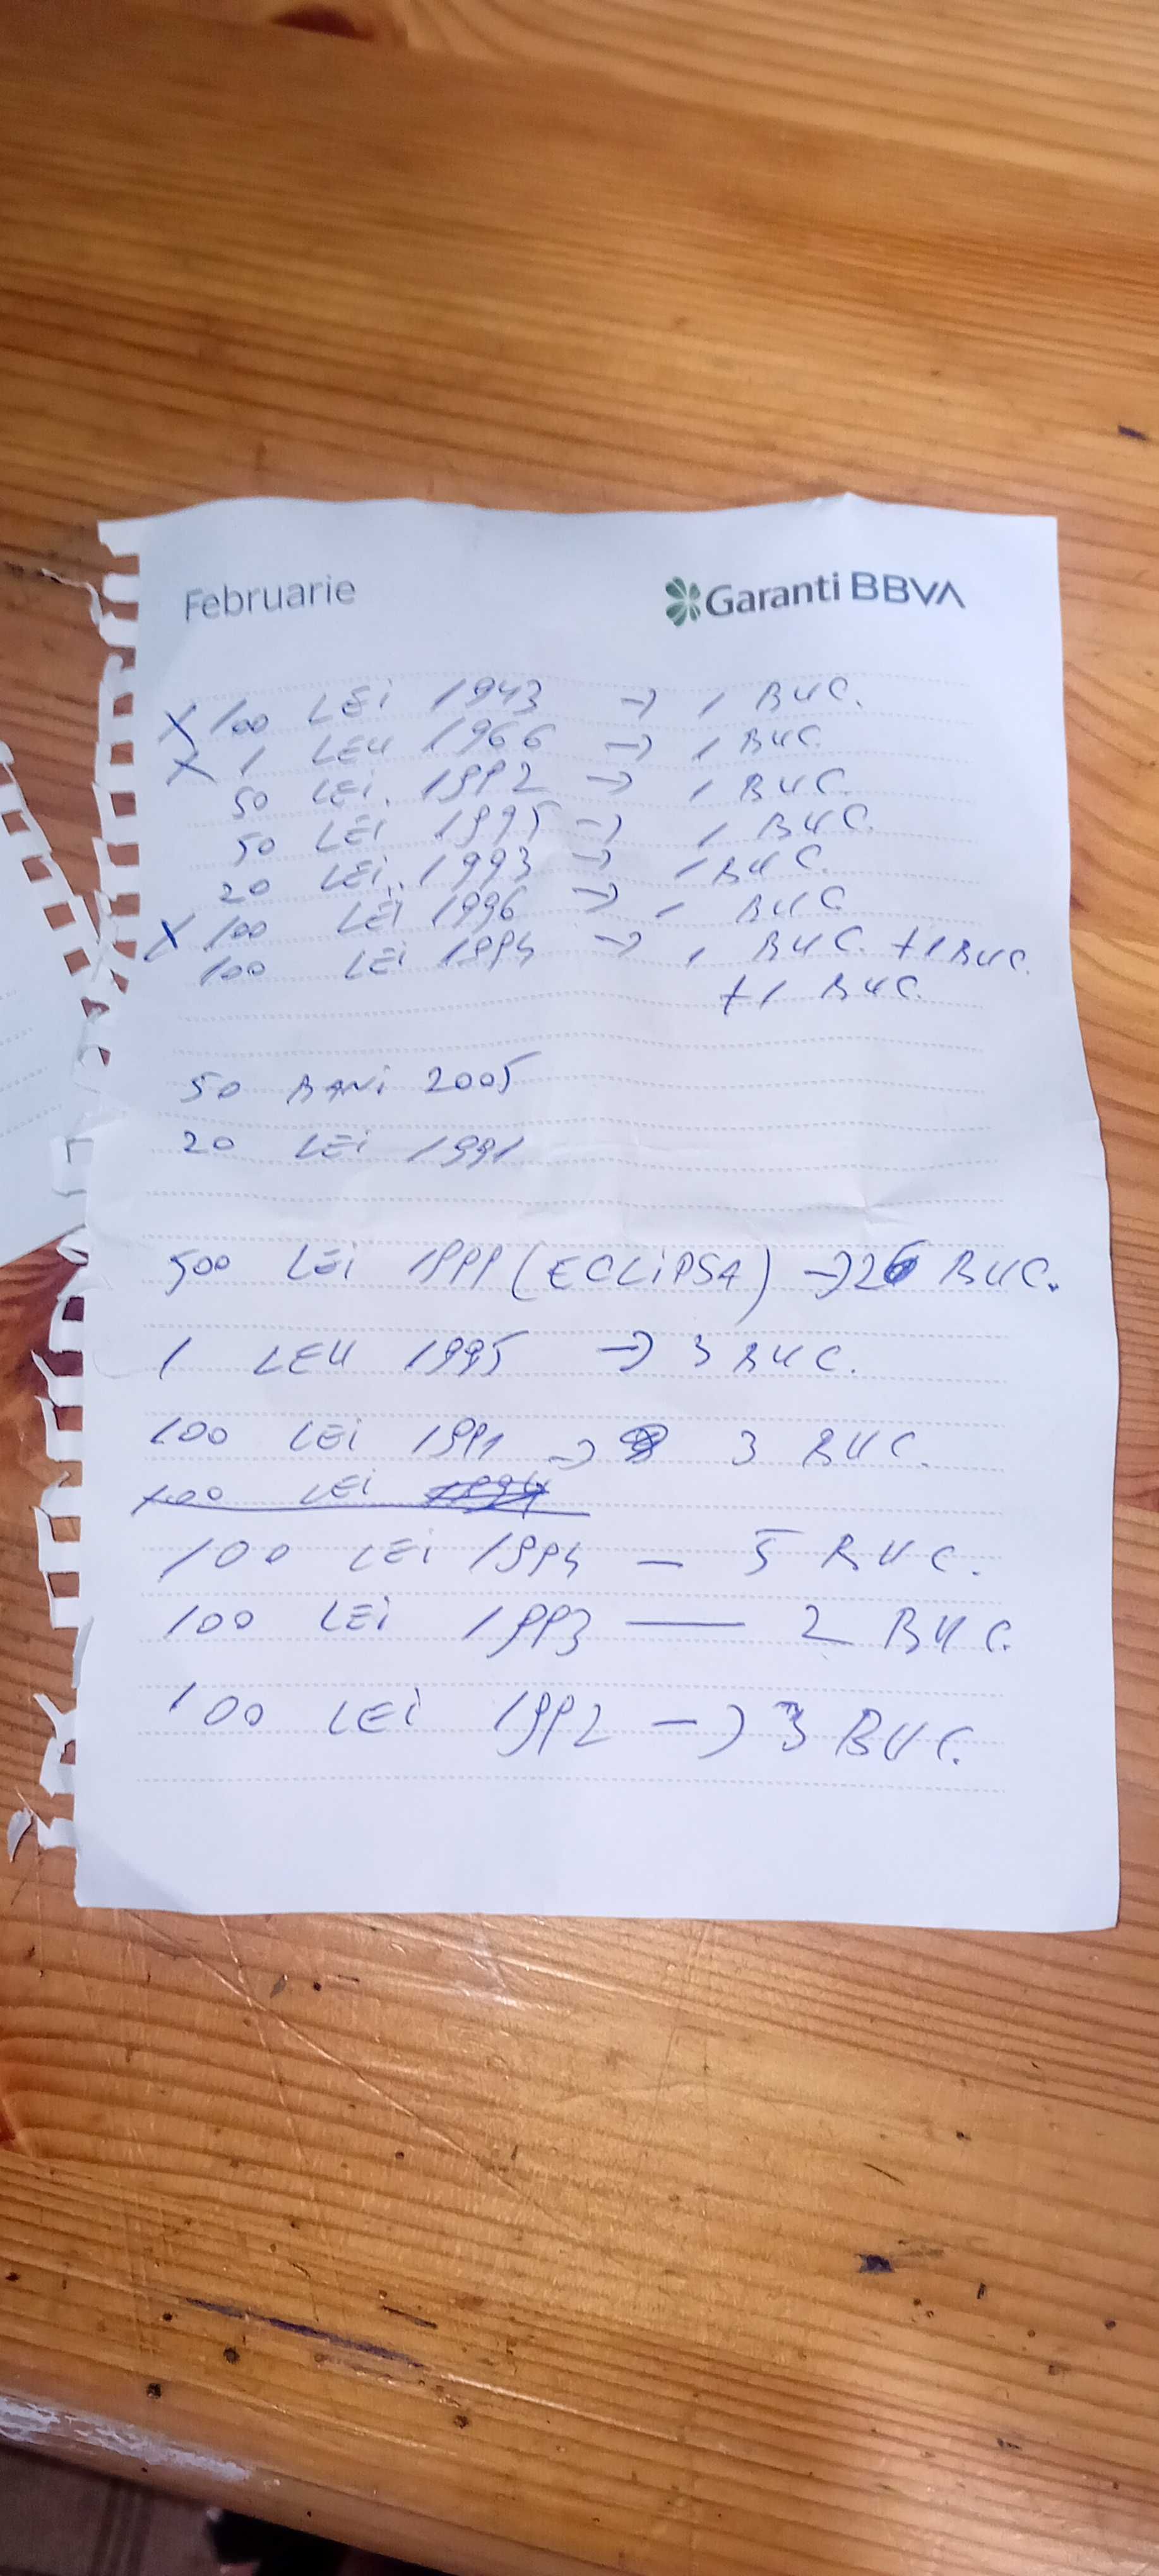 Februarie
Garanti BBVA
X 100 LEI 1943 → 1 BUC.
X 1 LEU 1966 → 1 BUC.
50 LEI. 1992 → 1 BUC.
50 LEI 1995 → 1 BUC.
20 LEI.. 1993 → 1 BUC.
X 100 LEI 1996 → 1 BUC
100 LEI 1994 → 1 BUC. +1 BUC.
+1 BUC.
50 BANI 2005
20 LEI 1991
500 LEI 1999 (ECLIPSA) → 26 BUC.
1 LEU 1995 → 3 BUC.
100 LEI 1991 → 3 BUC.
100 LEI 1994
100 LEI 1994 — 5 BUC.
100 LEI 1993 — 2 BUC.
100 LEI 1992 → 3 BUC.